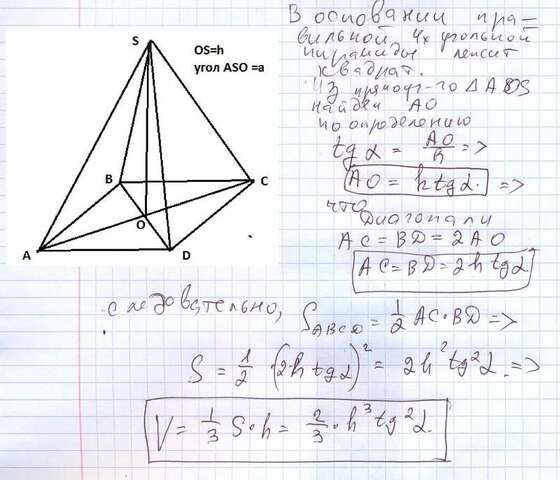 S
OS=h
угол ASO =a
B
C
O
A
D
В основании пра-
вильной 4х угольной
пирамиды лежит
квадрат.
Из прямоуг-го Δ AOS
найдем AO
по определению
tg α = AO/h =>
AO = h tg α. =>
что
Диагонали
AC = BD = 2AO
AC = BD = 2h tg α
следовательно, S_ABCD = 1/2 AC·BD =>
S = 1/2 (2·h tg α)² = 2h² tg² α. =>
V = 1/3 S·h = 2/3 · h³ tg² α.